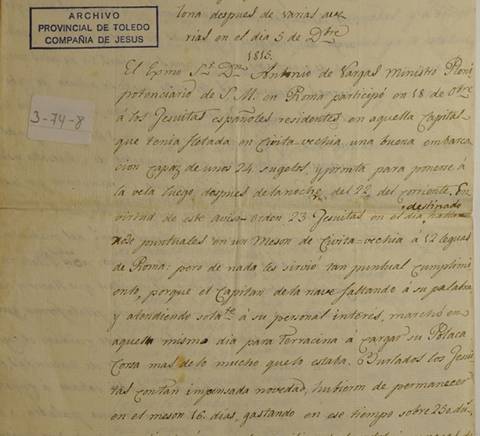 ARCHIVO
PROVINCIAL DE TOLEDO
COMPAÑIA DE JESUS
3-74-8
lona despues de varias ave
rias en el dia 5 de Dbre
1815.
El Exmo Sr. Dn. Antonio de Vargas Ministro Pleni
potenciario de S. M. en Roma participó en 18 de Otre
á los Jesuitas españoles residentes en aquella Capital
que tenia fletada en Civita-vechia una buena embarca
cion capaz de unos 24 sugetos, y pronta para ponerse á
la vela luego despues de la noche del 22 del corriente. En
destinado
virtud de este aviso-orden 23 Jesuitas en el dia
puntuales en un Meson de Civita-vechia á 12 leguas
de Roma: pero de nada les sirvió tan puntual cumplimi
ento, porque el Capitan de la nave faltando á su palabra
y atendiendo solate á su personal interes, marchó en
aquella mismo dia para Terracina á cargar su Polaca
Corsa mas de lo mucho que lo estaba. Burlados los Jesui
tas con tan impensada novedad, hubieron de permanecer
en el meson 16 dias, gastando en ese tiempo sobre 25 du